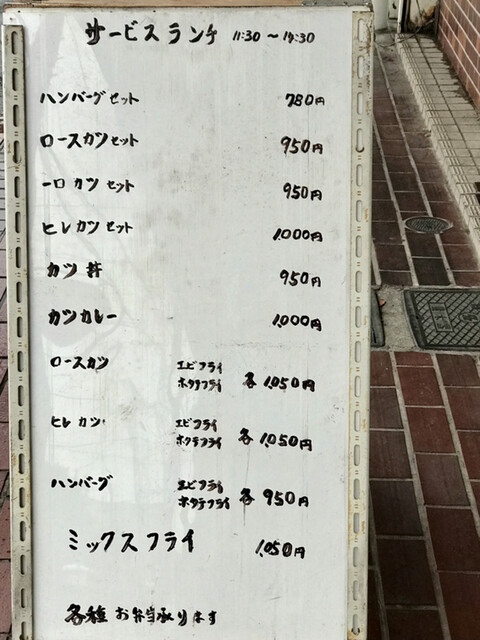 サービスランチ 11:30〜14:30
ハンバーグセット 780円
ロースカツセット 950円
一口カツセット 950円
ヒレカツセット 1,000円
カツ丼 950円
カツカレー 1,000円
ロースカツ エビフライ
ホタテフライ 各1,050円
ヒレカツ エビフライ
ホタテフライ 各1,050円
ハンバーグ エビフライ
ホタテフライ 各950円
ミックスフライ 1,050円
各種お弁当承ります